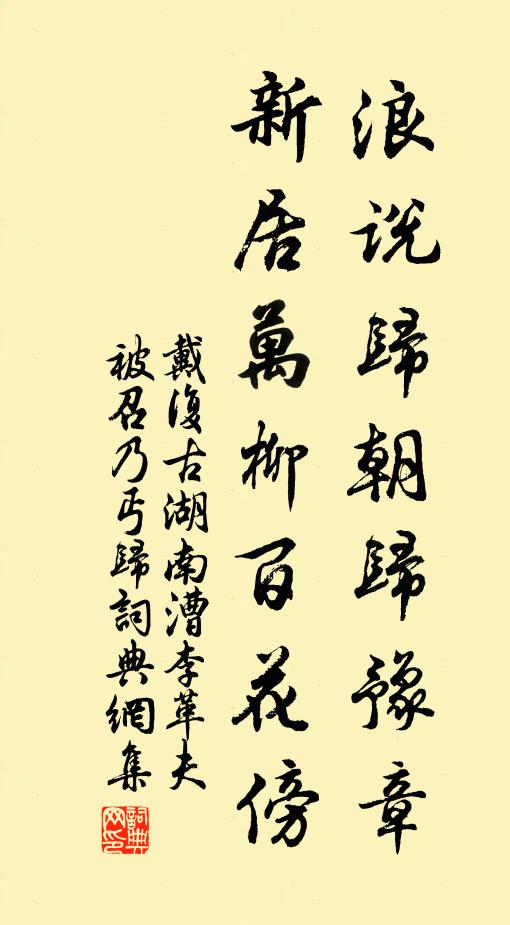 浪說歸朝歸豫章
新居萬柳百花傍
戴復古湖南漕李革夫
被召乃丐歸詞典網集
詞典網印